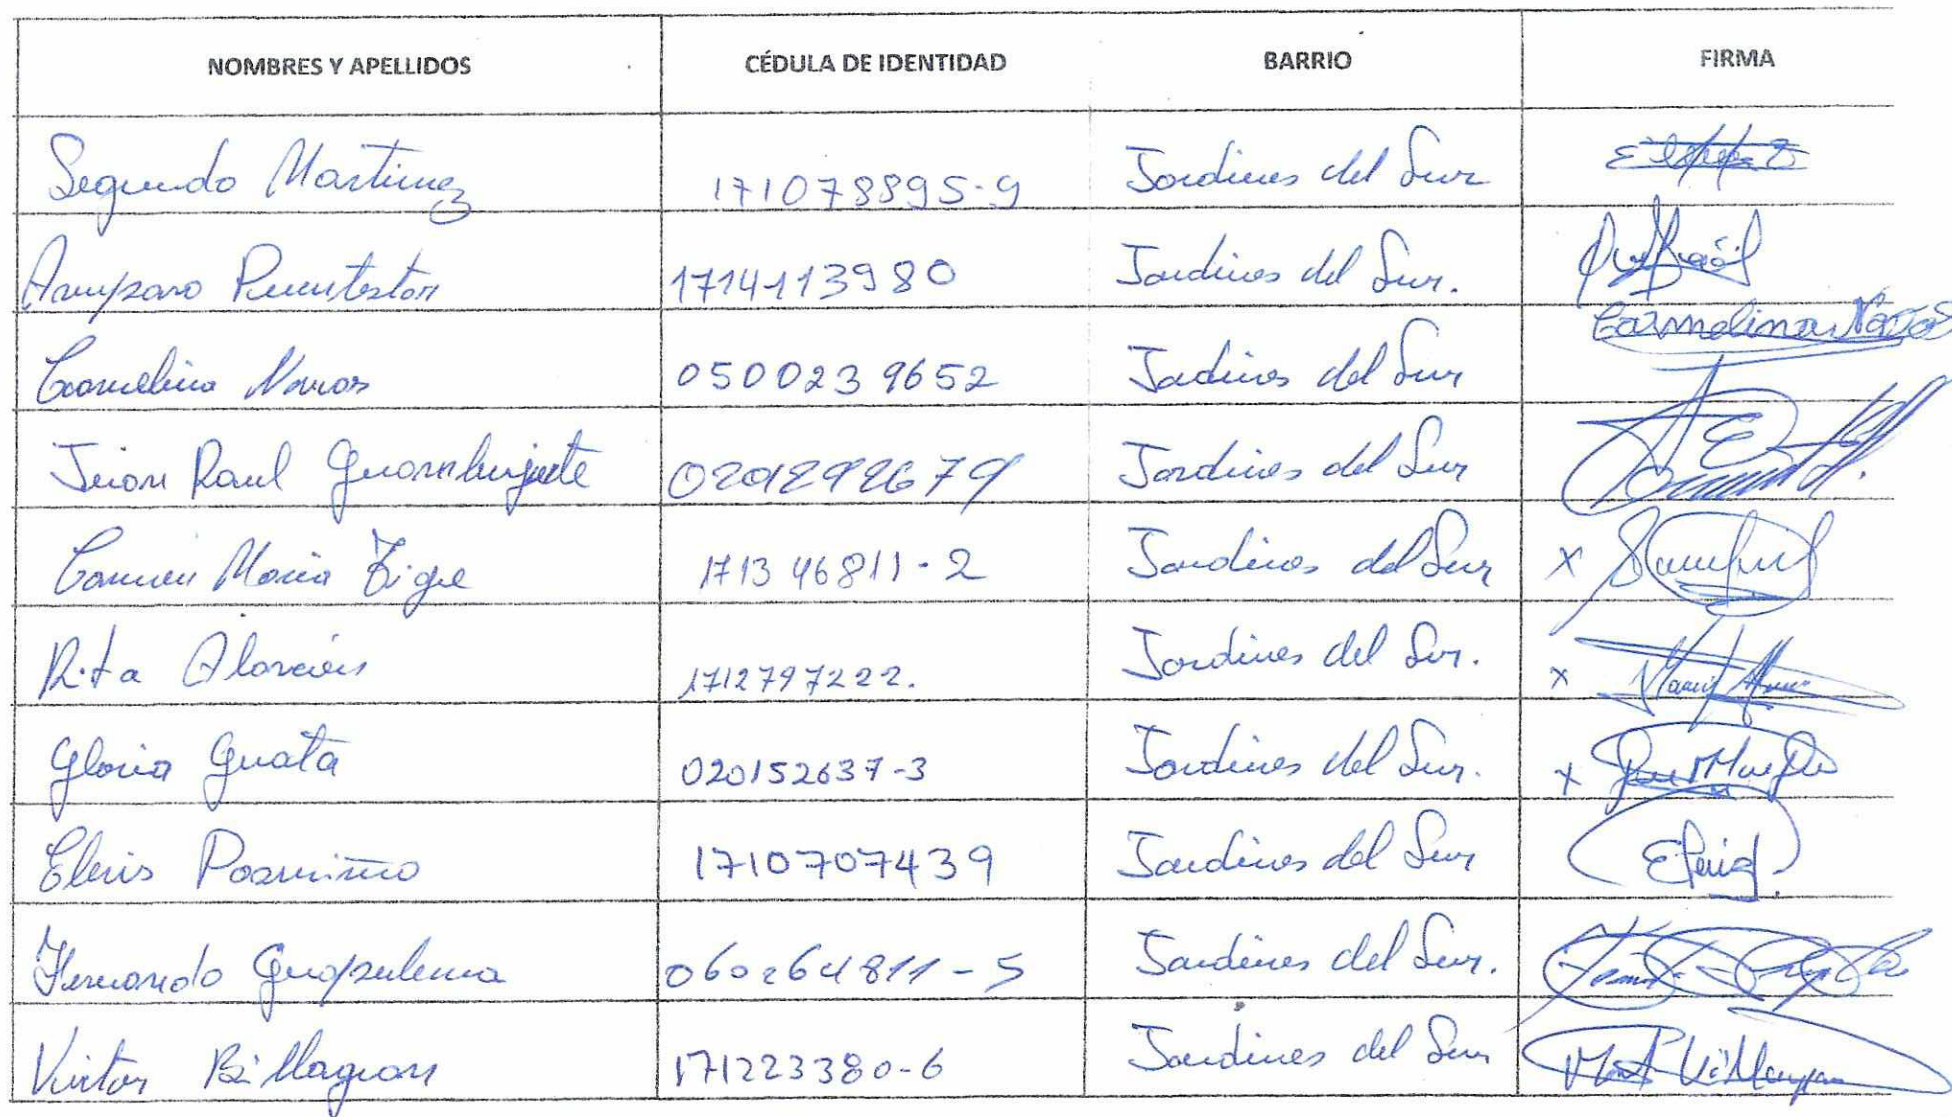 NOMBRES Y APELLIDOS CÉDULA DE IDENTIDAD BARRIO FIRMA
Segundo Martinez 171078895-9 Jardines del Sur
Amparo 1714113980 Jardines del Sur.
Carmelina Navas 0500239652 Jardines del Sur Carmelina Navas
Juan Raul 0201292679 Jardines del Sur
Carmen Maria Tigre 171346811-2 Jardines del Sur X
Rita Alarcón 1712797222. Jardines del Sur. X
Gloria Guata 020152637-3 Jardines del Sur. X
1710707439 Jardines del Sur
Hernando Guapulema 060264811-5 Jardines del Sur.
Victor Billagran 171223380-6 Jardines del Sur